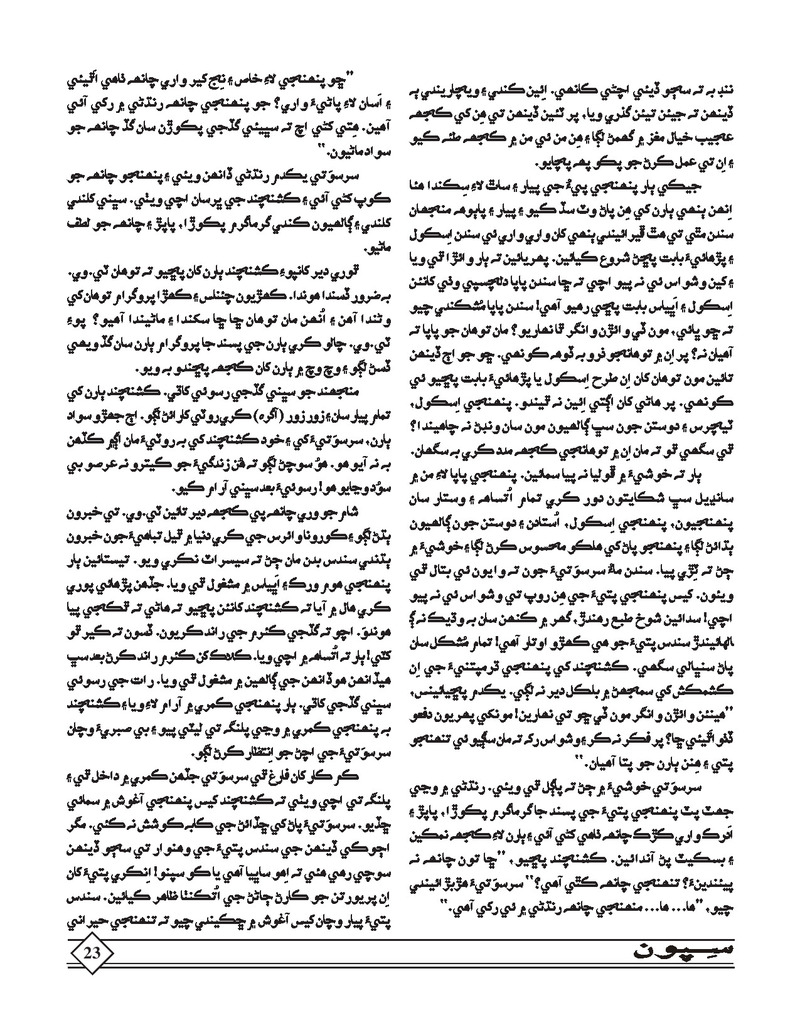 ننڊ به ته سڄو ڏينهن اچڻي ڪانهي. اِئين ڪندي ۽ ويچاريندي ٻه
ڏينهن ته جيئن تيئن گذري ويا، پر ٽئين ڏينهن تي هن کي ڪجهه
عجيب خيال مغز ۾ گهمڻ لڳا ۽ هِن من ئي من ۾ ڪجهه طئه ڪيو
۽ اِن تي عمل ڪرڻ جو پڪو پهه پچايو.
جيڪي ٻار پنهنجي پيءُ جي پيار ۽ ساٿ لاءِ سِڪندا هئا
اِنهن ٻنهي ٻارن کي هِن پاڻ وٽ سڏ ڪيو ۽ پيار ۽ پاٻوهه منجهان
سندن مٿي تي هٿ ڦيرائيندي ٻنهي کان واري واري ئي سندن اِسڪول
۽ پڙهائيءَ بابت پڇڻ شروع ڪيائين. پهريائين ته ٻار وائڙا ٿي ويا
۽ کين وشواس ئي نه پيو اچي ته ڇا سندن پاپا دلچسپي وٺي کانئن
اِسڪول ۽ اَڀياس بابت پڇي رهيو آهي! سندن پاپا مُشڪندي چيو
ته ڇو ڀائي، مون ٿي وائڙن وانگر ڦا نهاريو؟ مان توهان جو پاپا ته
آهيان نه؟ پر اِن ۾ توهانجو ڏوهه ڪونهي. ڇو جو اڄ ڏينهن
تائين مون توهان کان اِن طرح اِسڪول يا پڙهائيءَ بابت پڇيو ئي
ڪونهي. پر هاڻي کان اڳتي اِئين نه ٿيندو. پنهنجي اِسڪول،
ٽيچرس ۽ دوستن جون سڀ ڳالهيون مون سان ونڊڻ نه چاهيندا؟
ٿي سگهي ٿو ته مان اِن ۾ توهانجي ڪجهه مدد ڪري به سگهان.
ٻار ته خوشيءَ ۾ ڦوليا نه پيا سمائين. پنهنجي پاپا لاءِ من ۾
سانڍيل سڀ شڪايتون دور ڪري تمام اُتساهه ۽ وستار سان
پنهنجيون، پنهنجي اِسڪول، اُستادن ۽ دوستن جون ڳالهيون
ٻڌائڻ لڳا ۽ پنهنجو پاڻ کي هلڪو محسوس ڪرڻ لڳا ۽ خوشيءَ ۾
ڄڻ ته ٽِڙي پيا. سندن ماءُ سرسوَتيءَ جون ته وايون ئي بتال ٿي
ويئون. کيس پنهنجي پتيءَ جي هِن روپ تي وشواس ئي نه پيو
اچي! سدائين شوخ طبع رهندڙ، گهر ۾ ڪنهن سان به وڌيڪ نه ڳـ
ـالهائيندڙ سندس پتيءَ جو هي ڪهڙو اوتار آهي! تمام مُشڪل سان
پاڻ سنڀالي سگهي. ڪشنچند کي پنهنجي ڌرمپتنيءَ جي اِن
ڪشمڪش کي سمجهڻ ۾ بلڪل دير نه لڳي. يڪدم پڇيائينس،
”هيئنئن وائڙن وانگر مون ڏي ڇو ٿي نهارين! مونکي پهريون دفعو
ڏٺو اٿيئي ڇا؟ پر فڪر نه ڪر ۽ وشواس رک ته مان سڳيو ئي تنهنجو
پتي ۽ هِنن ٻارن جو پتا آهيان.“
سرسوَتي خوشيءَ ۾ ڄڻ ته پاڳل ٿي ويئي. رنڌڻي ۾ وڃي
جهٽ پٽ پنهنجي پتيءَ جي پسند جا گرماگرم پڪوڙا، پاپڙ ۽
اَدرڪ واري ڪڙڪ چانهه ٺاهي کڻي آئي ۽ ٻارن لاءِ ڪجهه نمڪين
۽ بسڪيٽ پڻ آندائين. ڪشنچند پڇيو، ”ڇا تون چانهه نه
پيئندينءَ؟ تنهنجي چانهه ڪٿي آهي؟“ سرسوَتيءَ هڙٻڙائيندي
چيو، ”ها... ها... منهنجي چانهه رنڌڻي ۾ ئي رکي آهي.“
”ڇو پنهنجي لاءِ خاص ۽ نِج کير واري چانهه ٺاهي اٿيئي
۽ اَسان لاءِ پاڻيءَ واري؟ جو پنهنجي چانهه رنڌڻي ۾ رکي آئي
آهين. هِتي کڻي اچ ته سڀيئي گڏجي پڪوڙن سان گڏ چانهه جو
سواد ماڻيون.“
سرسوَتي يڪدم رنڌڻي ڏانهن ويئي ۽ پنهنجو چانهه جو
ڪوپ کڻي آئي ۽ ڪشنچند جي ڀرسان اچي ويٺي. سڀني کلندي
کلندي ۽ ڳالهيون ڪندي گرماگرم پڪوڙا، پاپڙ ۽ چانهه جو لطف
ماڻيو.
ٿوري دير کانپوءِ ڪشنچند ٻارن کان پڇيو ته توهان ٽي.وي.
به ضرور ڏسندا هوندا. ڪهڙيون چئنلس ۽ ڪهڙا پروگرام توهان کي
وڻندا آهن ۽ اُنهن مان توهان ڇا ڇا سکندا ۽ ماڻيندا آهيو؟ پوءِ
ٽي.وي. چالو ڪري ٻارن جي پسند جا پروگرام ٻارن سان گڏ ويهي
ڏسڻ لڳو ۽ وچ وچ ۾ ٻارن کان ڪجهه پڇندو به ويو.
منجهند جو سڀني گڏجي رسوئي کاڌي. ڪشنچند ٻارن کي
تمام پيار سان ۽ زور زور (آگره) ڪري روٽي کارائڻ لڳو. اڄ جهڙو سواد
ٻارن، سرسوَتيءَ کي ۽ خود ڪشنچند کي به روٽيءَ مان اڳ ۾ ڪڏهن
به نه آيو هو. هوُ سوچڻ لڳو ته هن زندگيءَ جو ڪيترو نه عرصو بي
سوُد وڃايو هو! رسوئيءَ بعد سڀني آرام ڪيو.
شام جو وري چانهه پي ڪجهه دير تائين ٽي.وي. تي خبرون
ٻڌڻ لڳو ۽ ڪورونا وائرس جي ڪري دنيا ۾ ڦيل تباهيءَ جون خبرون
ٻڌندي سندس بدن مان ڄڻ ته سيسراٽ نڪري ويو. تيستائين ٻار
پنهنجي هوم ورڪ ۽ اَڀياس ۾ مشغول ٿي ويا. جڏهن پڙهائي پوري
ڪري هال ۾ آيا ته ڪشنچند کانئن پڇيو ته هاڻي ته ٿڪجي پيا
هوندوَ. اچو ته گڏجي ڪئرم جي راند ڪريون. ڏسون ته ڪير ٿو
کٽي! ٻار ته اُتساهه ۾ اچي ويا. ڪلاڪ کن ڪئرم راند ڪرڻ بعد سڀ
هيڏانهن هوڏانهن جي ڳالهين ۾ مشغول ٿي ويا. رات جي رسوئي
سڀني گڏجي کاڌي. ٻار پنهنجي ڪمري ۾ آرام لاءِ ويا ۽ ڪشنچند
به پنهنجي ڪمري ۾ وڃي پلنگ تي ليٽي پيو ۽ بي صبريءَ وچان
سرسوَتيءَ جي اچڻ جو اِنتظار ڪرڻ لڳو.
ڪم ڪار کان فارغ ٿي سرسوَتي جڏهن ڪمري ۾ داخل ٿي ۽
پلنگ تي اچي ويٺي ته ڪشنچند کيس پنهنجي آغوش ۾ سمائي
ڇڏيو. سرسوَتيءَ پاڻ کي ڇڏائڻ جي ڪا به ڪوشش نه ڪئي. مگر
اڄوڪي ڏينهن جي سندس پتيءَ جي وهنوار تي سڄو ڏينهن
سوچي رهي هئي ته اِهو ساڀيا آهي يا ڪو سپنو! اِنڪري پتيءَ کان
اِن پريورتن جو ڪارڻ ڄاڻڻ جي اُتڪنٺا ظاهر ڪيائين. سندس
پتيءَ پيار وچان کيس آغوش ۾ ڇڪيندي چيو ته تنهنجي حيراني
سِپون
23